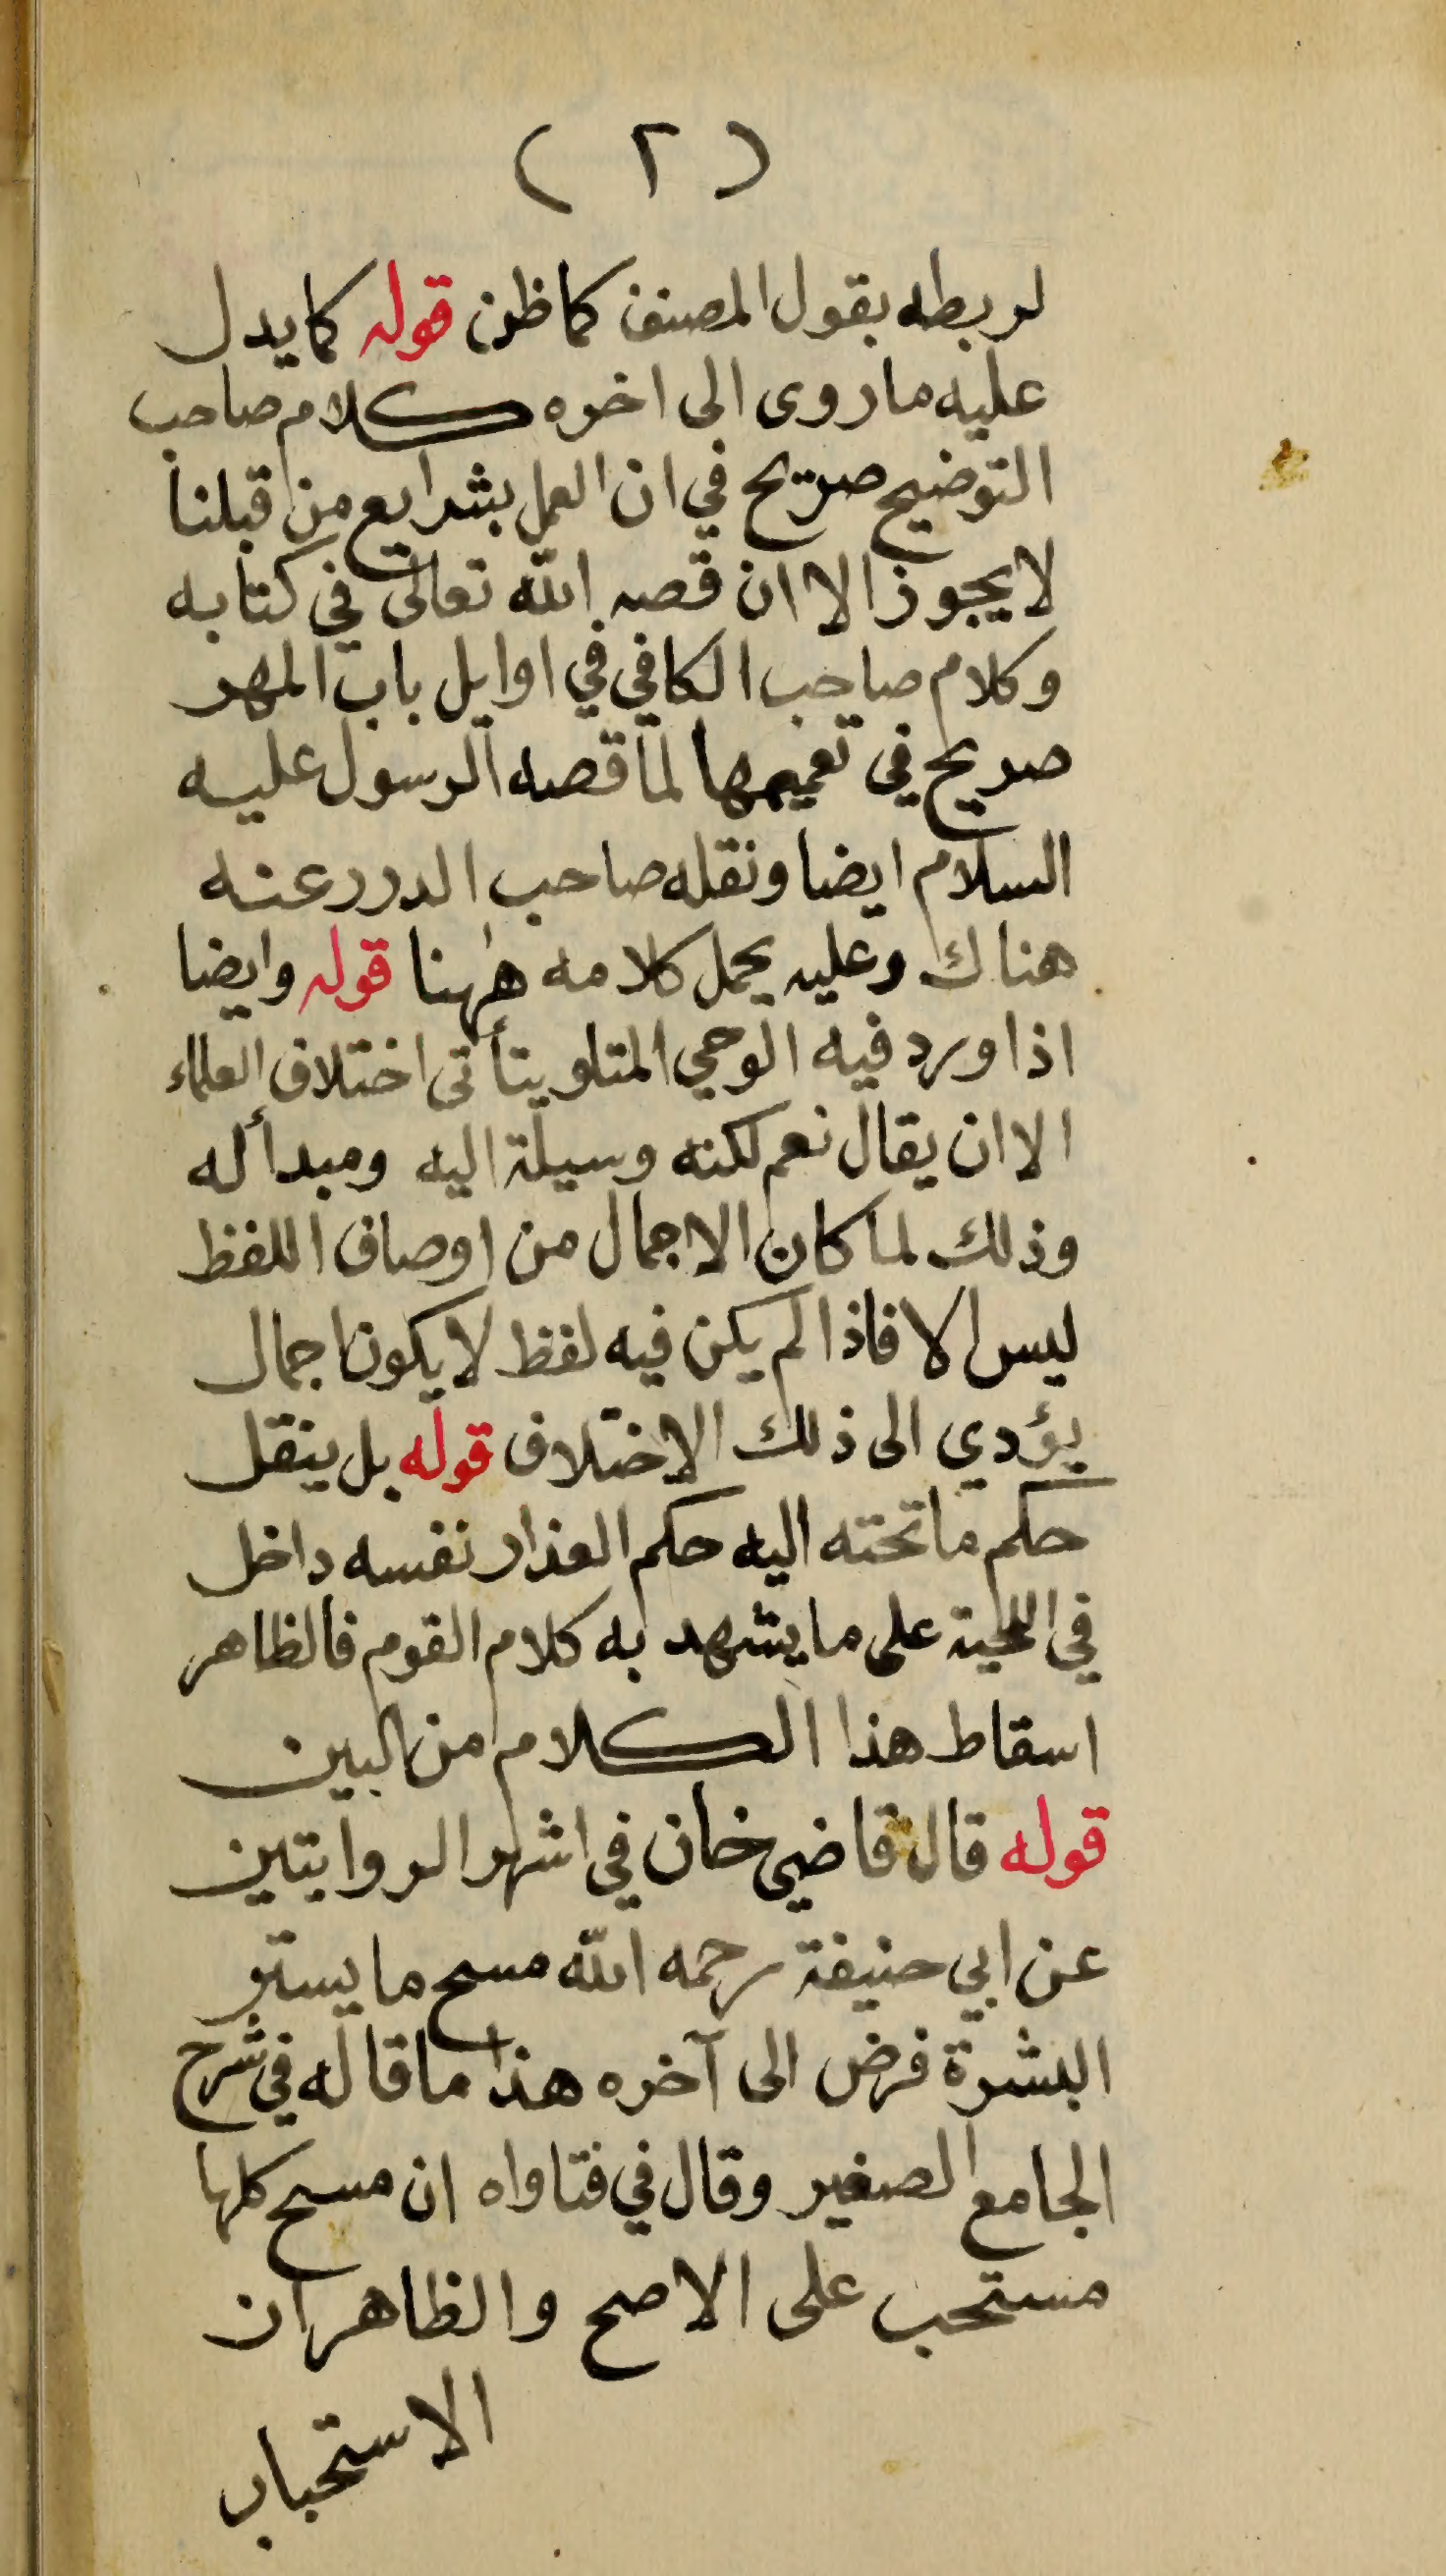 (٢)
لربطه بقول المصنف كما ظن قوله كما يدل
عليه ما روى الى اخره كلام صاحب
التوضيح صريح في ان العمل بشرايع من قبلنا
لا يجوز الا ان قصه الله تعالى في كتابه
وكلام صاحب الكافي في اوايل باب المهر
صريح في تعميمها لما قصه الرسول عليه
السلام ايضا ونقله صاحب الدرر عنه
هناك وعليه يحمل كلامه هٰهنا قوله وايضا
اذا ورد فيه الوحي المتلو يتأتى اختلاف العلماء
الا ان يقال نعم لكنه وسيلة اليه ومبدأ له
وذلك لما كان الاجمال من اوصاف اللفظ
ليس الا فاذا لم يكن فيه لفظ لا يكون اجمال
يؤدي الى ذلك الاختلاف قوله بل ينقل
حكم ما تحته اليه حكم العذار نفسه داخل
في اللحية على ما يشهد به كلام القوم فالظاهر
اسقاط هذا الكلام من البين
قوله قال قاضي خان في اشهر الروايتين
عن ابي حنيفة رحمه الله مسح ما يستر
البشرة فرض الى آخره هذا ما قاله في شرح
الجامع الصغير وقال في فتاواه ان مسح كلها
مستحب على الاصح والظاهر ان
الاستحباب